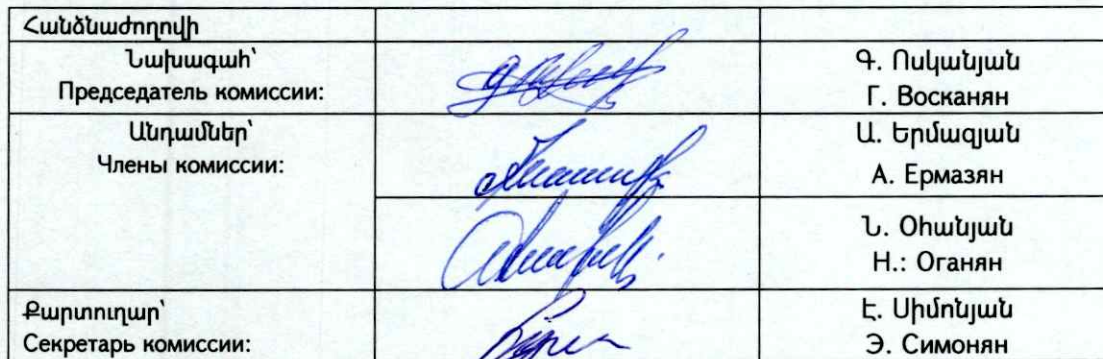 Հանձնաժողովի
Նախագահ՝
Председатель комиссии:
Գ. Ոսկանյան
Г. Восканян
Անդամներ՝
Члены комиссии:
Ա. Երմազյան
А. Ермазян
Ն. Օհանյան
Н.: Оганян
Քարտուղար՝
Секретарь комиссии:
Է. Սիմոնյան
Э. Симонян